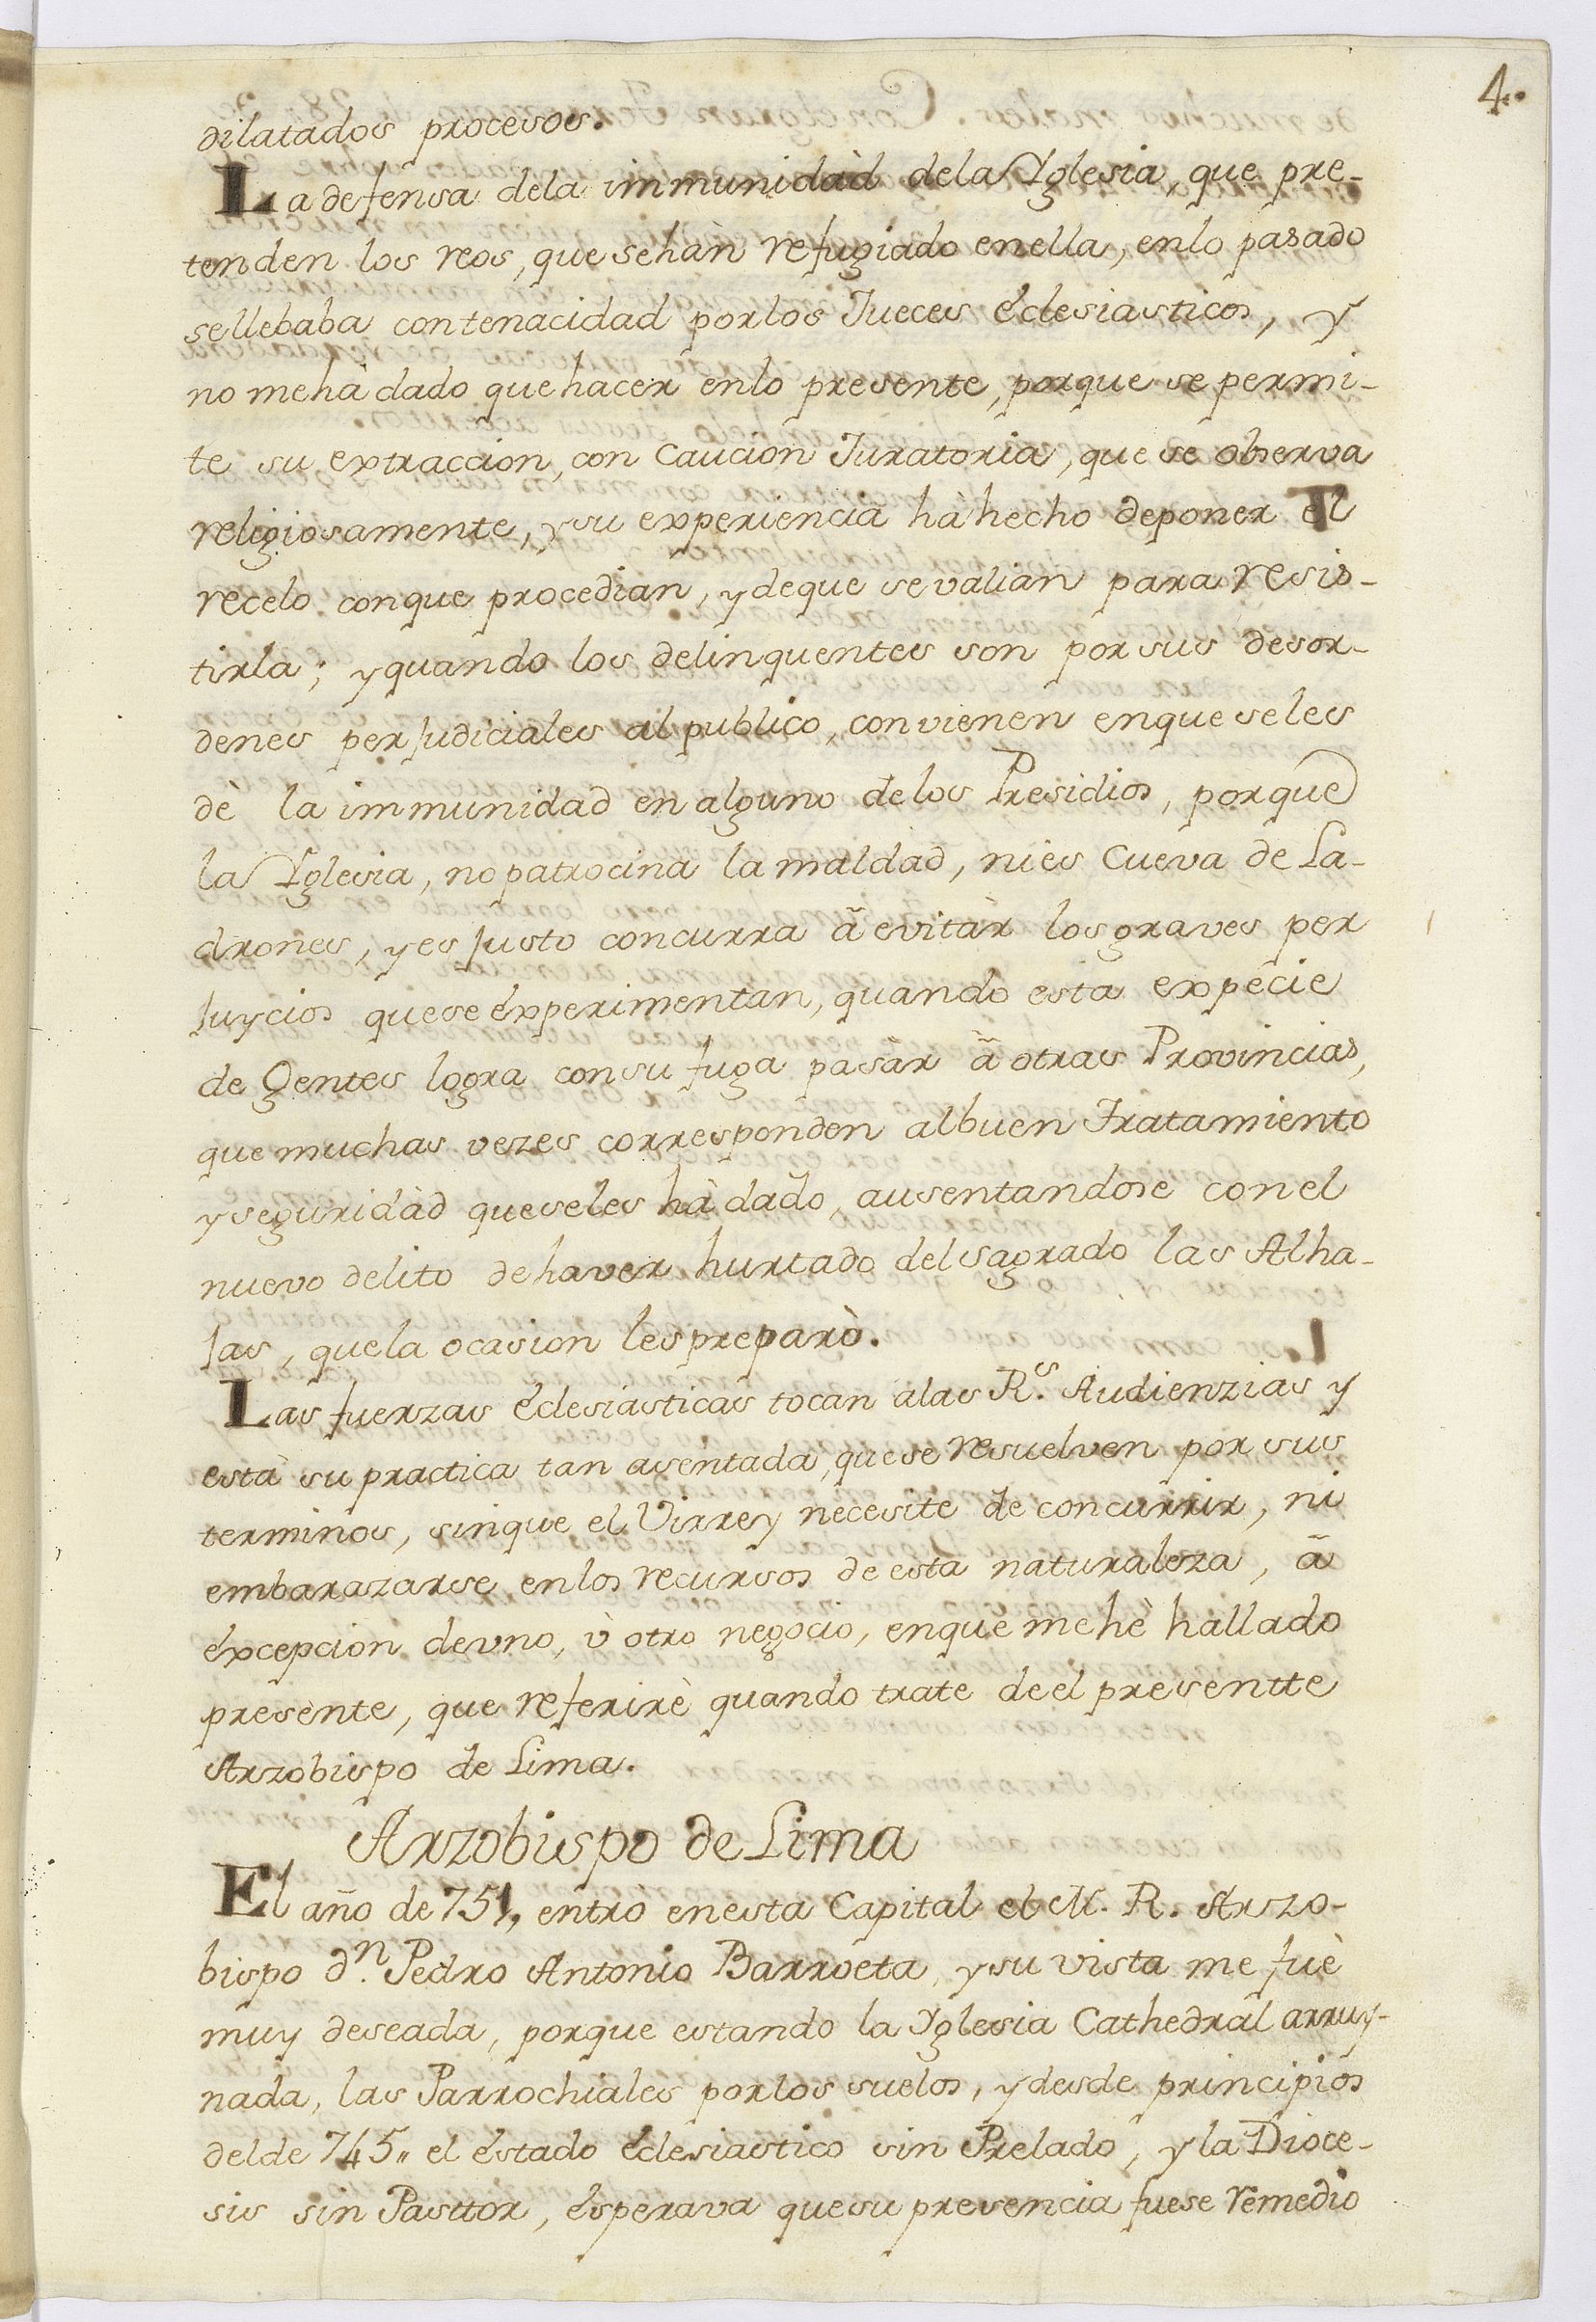 4..
dilatados procesos.
La defensa dela immunidàd dela Yglesia, que pre-
tenden los reos, que sehàn refugiado enella, enlo pasado
sellebaba contenacidad porlos Jueces éclesiasticos, y
no mehà dado quehacer enlo presente, porque se permi-
te su extraccion, con Caucion Juratoria, que se observa
religiosamente, y su experiencia hà hecho deponer el
recelo conque procedian, y deque se valian para resis-
tirla; y quando los delinquentes son por sus desor-
denes perjudiciales al publico, convienen enque seles
dè la immunidad en alguno delos Presidios, porque
la Yglesia, no patrocina la maldad, ni es Cueva de La-
drones, y es justo concurra ã evitàr los graves per
juycios quese éxperimentan, quando esta expecie
de Gentes logra con su fuga pasàr ã otras Provincias,
que muchas vezes corresponden albuen Tratamiento
y seguridàd queseles hà dado, ausentandose con el
nuevo delito dehaver hurtado del sagrado las Alha-
jas, quela ocasion les preparò.
Las fuerzas éclesiasticas tocan alas R.s Audienzias y
està su practica tan asentada, quese resuelven por sus
terminos, sinque el Virrey necesite de concurrir, ni
embarazarse enlos recursos de esta naturaleza, ã
éxcepcion devno, ù otro negocio, enque mehè hallado
presente, que referirè quando trate deel presentte
Arzobispo de Lima.
Arzobispo de Lima
El año de 751, entro enesta Capital el M. R. Arzo-
bispo d.n Pedro Antonio Barroeta, y su vista me fuè
muy deseada, porque estando la Yglesia Cathedràl arruy-
nada, las Parrochiales porlos suelos, y desde principios
delde 745,, el éstado éclesiastico sin Prelado, y la Dioce-
sis sin Pasttor, ésperava quesu presencia fuese remedio